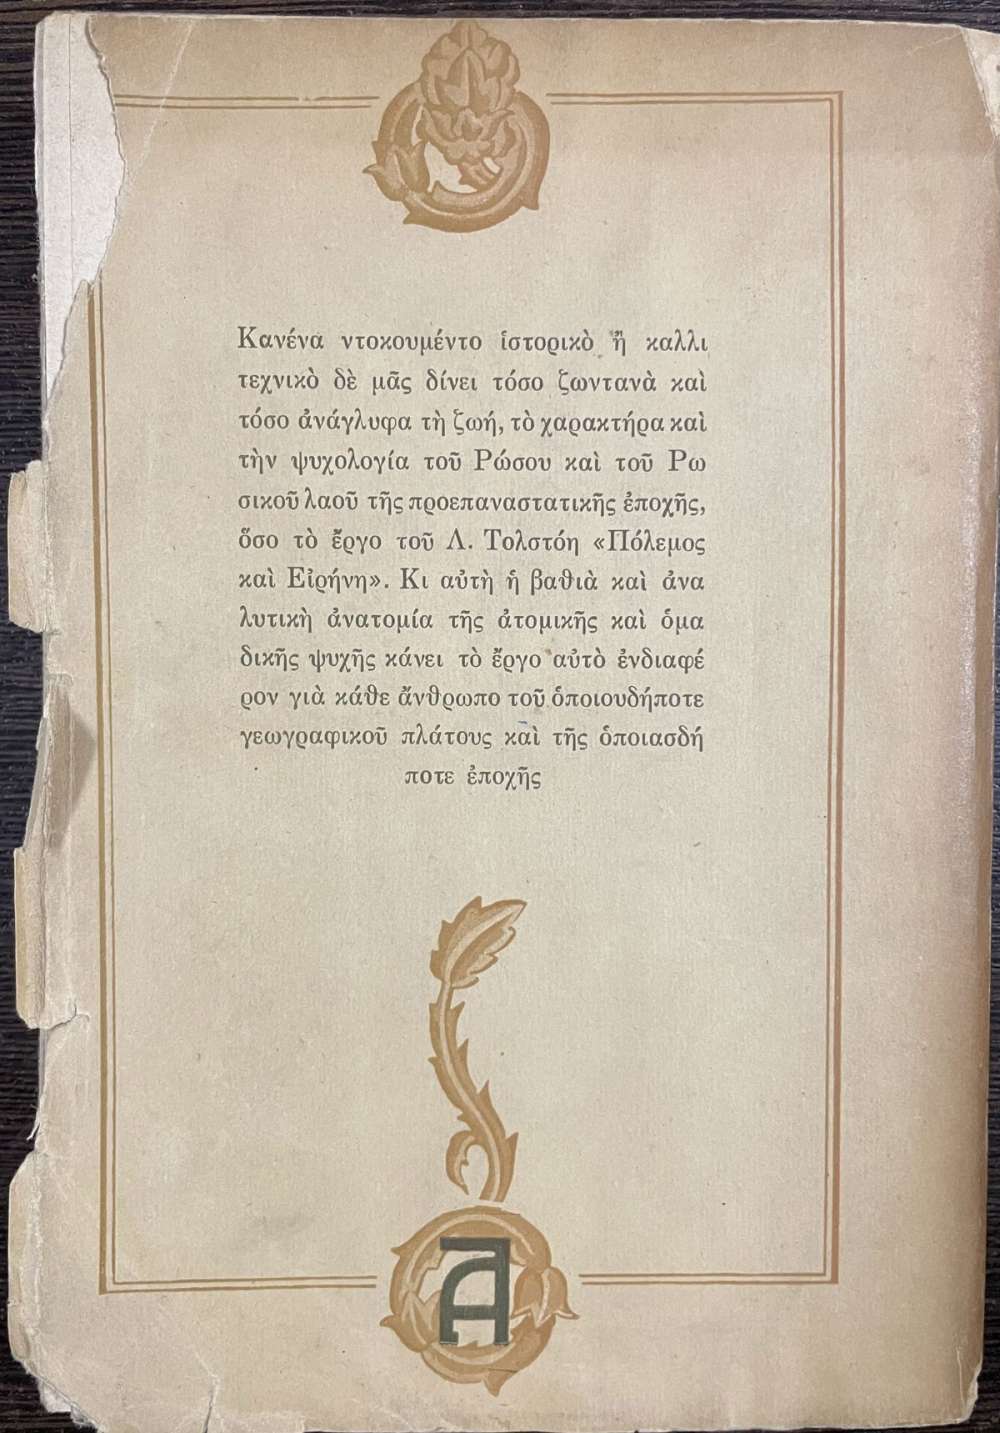 Κανένα ντοκουμέντο ἱστορικὸ ἢ καλλι
τεχνικὸ δὲ μᾶς δίνει τόσο ζωντανὰ καὶ
τόσο ἀνάγλυφα τὴ ζωή, τὸ χαρακτήρα καὶ
τὴν ψυχολογία τοῦ Ρώσου καὶ τοῦ Ρω
σικοῦ λαοῦ τῆς προεπαναστατικῆς ἐποχῆς,
ὅσο τὸ ἔργο τοῦ Λ. Τολστόη «Πόλεμος
καὶ Εἰρήνη». Κι αὐτὴ ἡ βαθιὰ καὶ ἀνα
λυτικὴ ἀνατομία τῆς ἀτομικῆς καὶ ὁμα
δικῆς ψυχῆς κάνει τὸ ἔργο αὐτὸ ἐνδιαφέ
ρον γιὰ κάθε ἄνθρωπο τοῦ ὁποιουδήποτε
γεωγραφικοῦ πλάτους καὶ τῆς ὁποιασδή
ποτε ἐποχῆς
Α